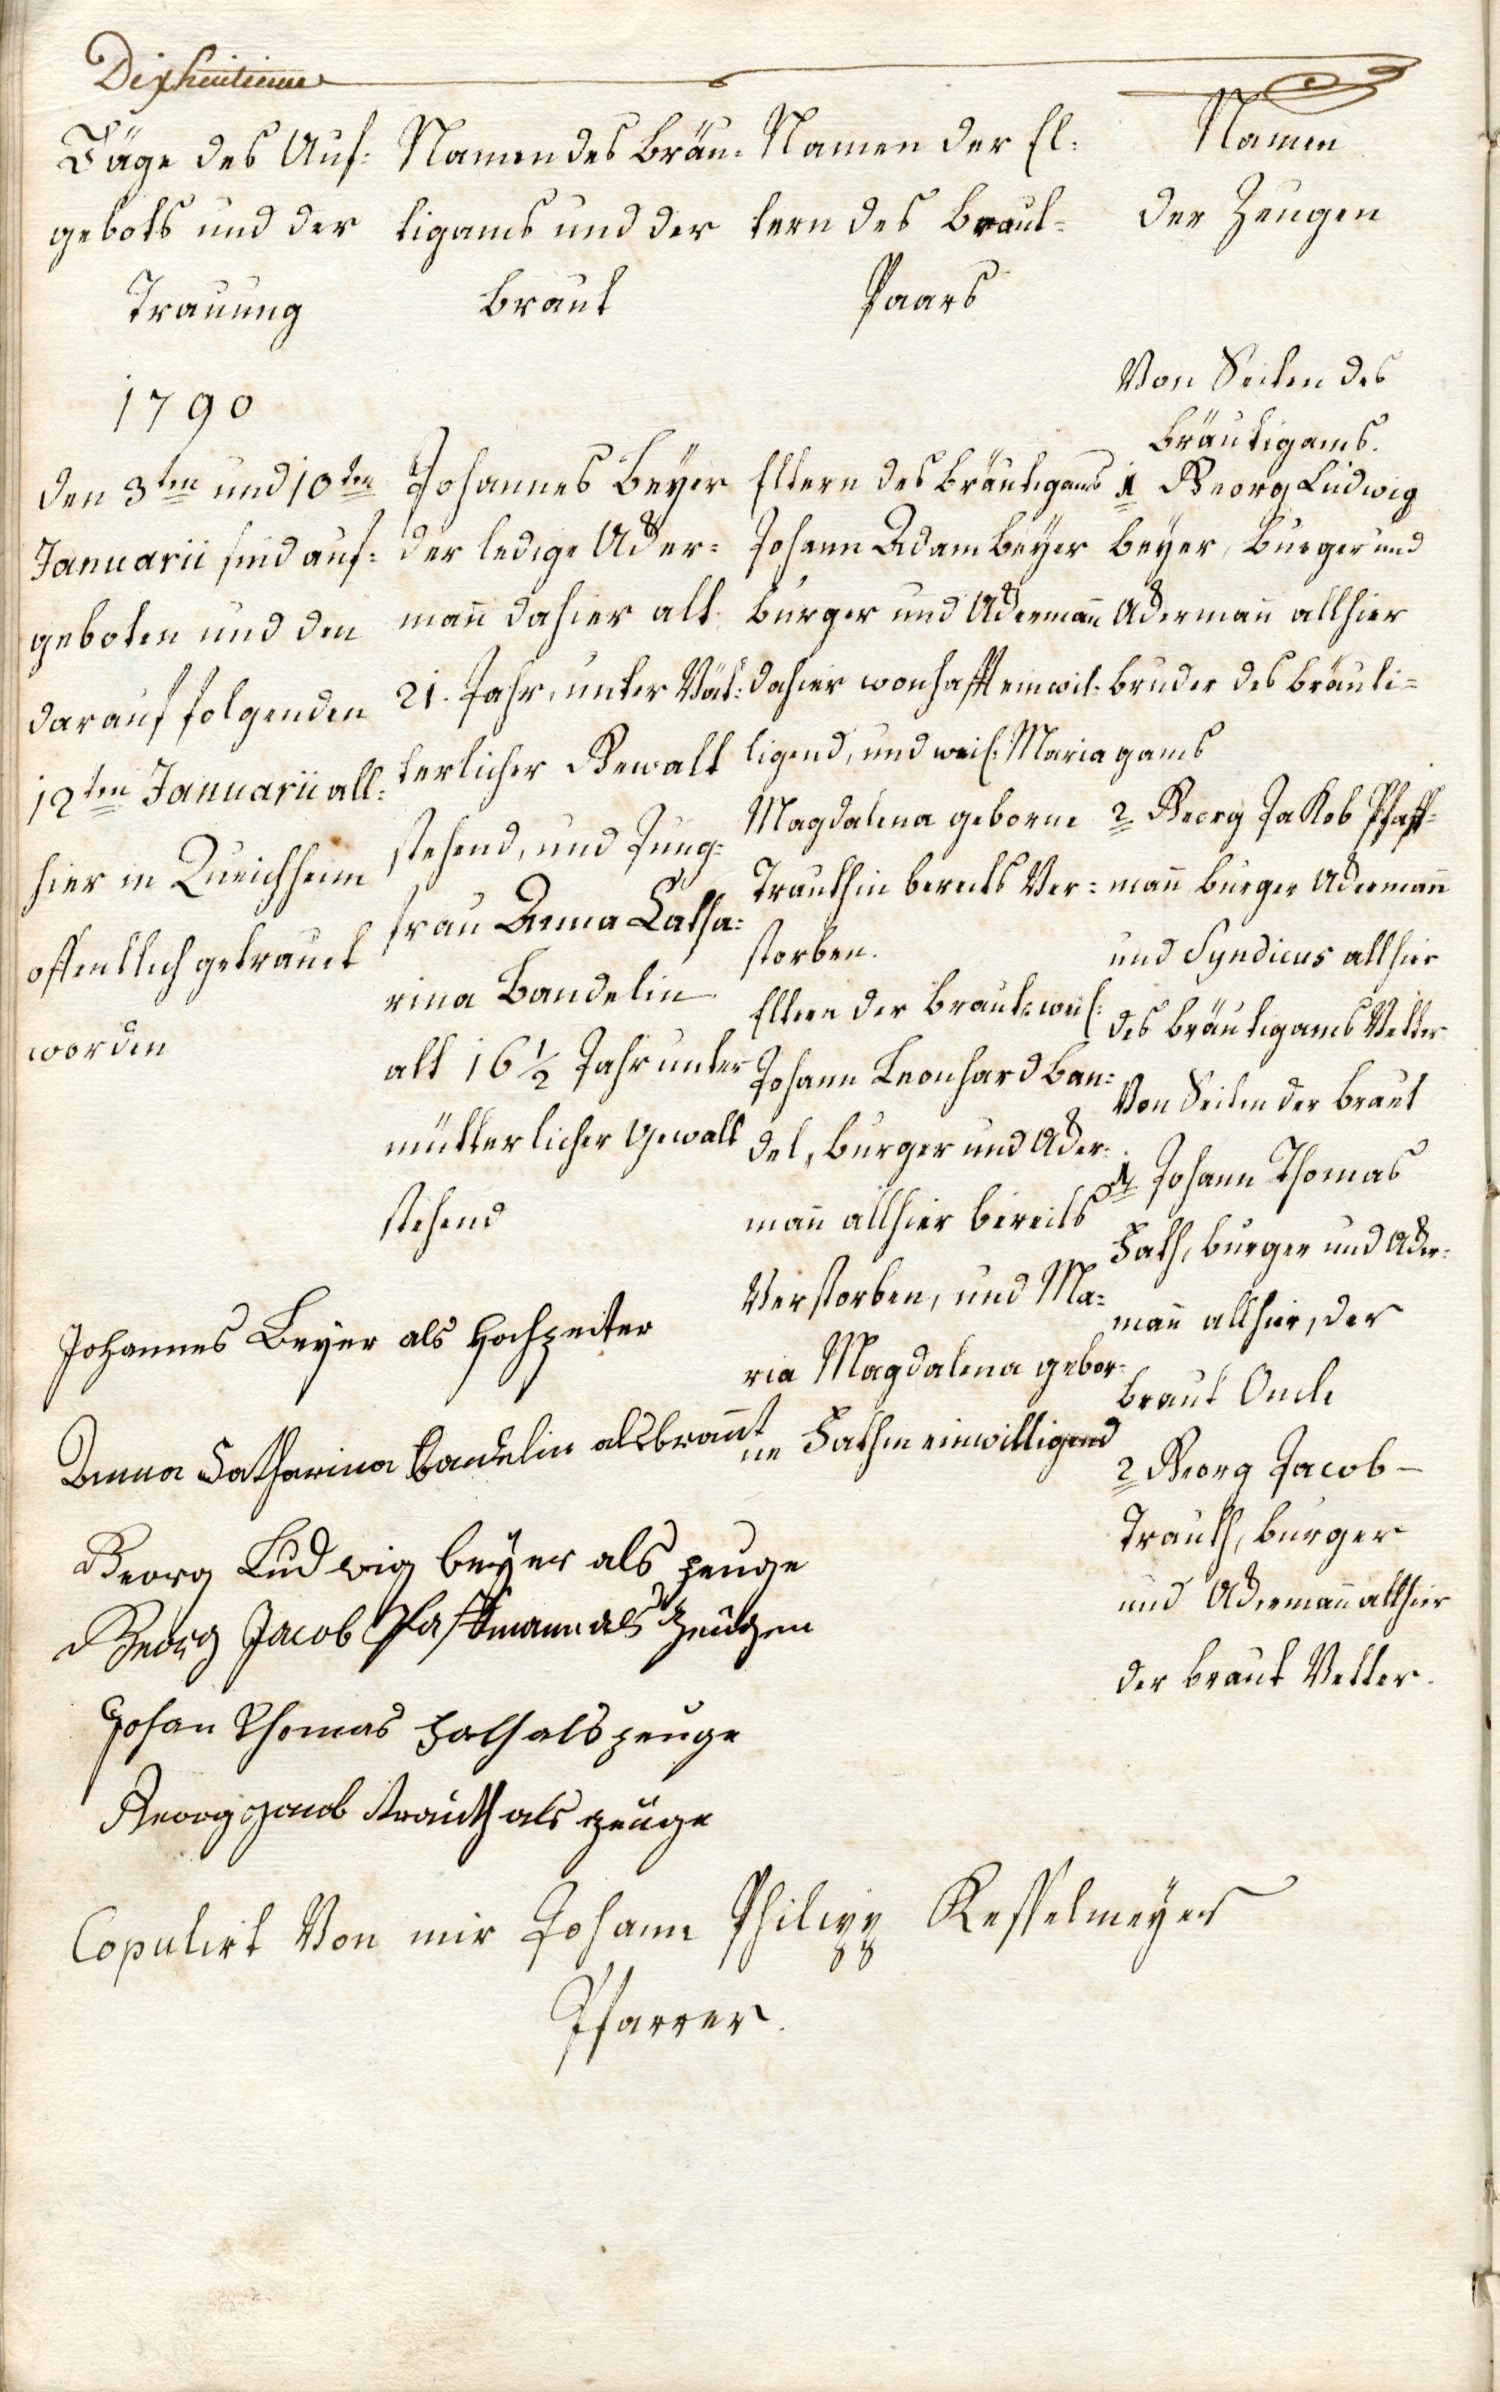 Dixhuitieme
Täge des Auf-
gebots und der
Trauung
1790
den 3ten und 10ten
Januarii sind auf-
geboten und den
darauf folgenden
12ten Januarii all-
hier in Queichheim
offentlich getraut
worden
Namen des Bräu-
tigams und der
Braut
Johannes Beyer
der ledige Acker-
mañ dahier alt
21. Jahr, unter Vät-
terlicher Gewalt
stehend, und Jung-
frau Anna Catha-
rina Bandelin
alt 16 1/2 Jahr unter
mütterlicher Gewalt
stehend
Namen der El-
tern des Braut-
Paars
Eltern des Bräutigams
Johann Adam Beyer
Burger und Ackermañ
dahier wonhafft einwil-
ligend, und weil. Maria
Magdalena geborne
Trauthin bereits Ver-
storben.
Eltern der Braut weil.
Johann Leonhard Ban-
del, Burger und Acker-
mañ allhier bereits
Verstorben, und Ma-
ria Magdalena gebor-
ne Hathin einwilligend
Namen
der Zeugen
Von Seiten des
Bräutigams.
1 Georg Ludwig
Beyer, Burger und
Ackermañ allhier
Bruder des Bräuti-
gams
2 Georg Jakob Pfaff-
mañ Burger Ackermañ
und Syndicus allhier
des Bräutigams Vetter
Von Seiten der Braut
1 Johann Thomas
Hath, Burger und Acker-
mañ allhier, der
Braut Oncle
2 Georg Jacob
Trauth, Burger
und Ackermañ allhier
der Braut Vetter.
Johannes Beyer als Hochzeiter
Anna Catharina Bandelin als braut
Georg Ludwig beyer als zeuge
Georg Jacob Pfaffmann als Zeugen
Johan Thomas Hath als zeuge
Georg Jacob Trauth als zeuge
Copulirt Von mir Johann Philipp Kesselmeyer
Pfarrer.